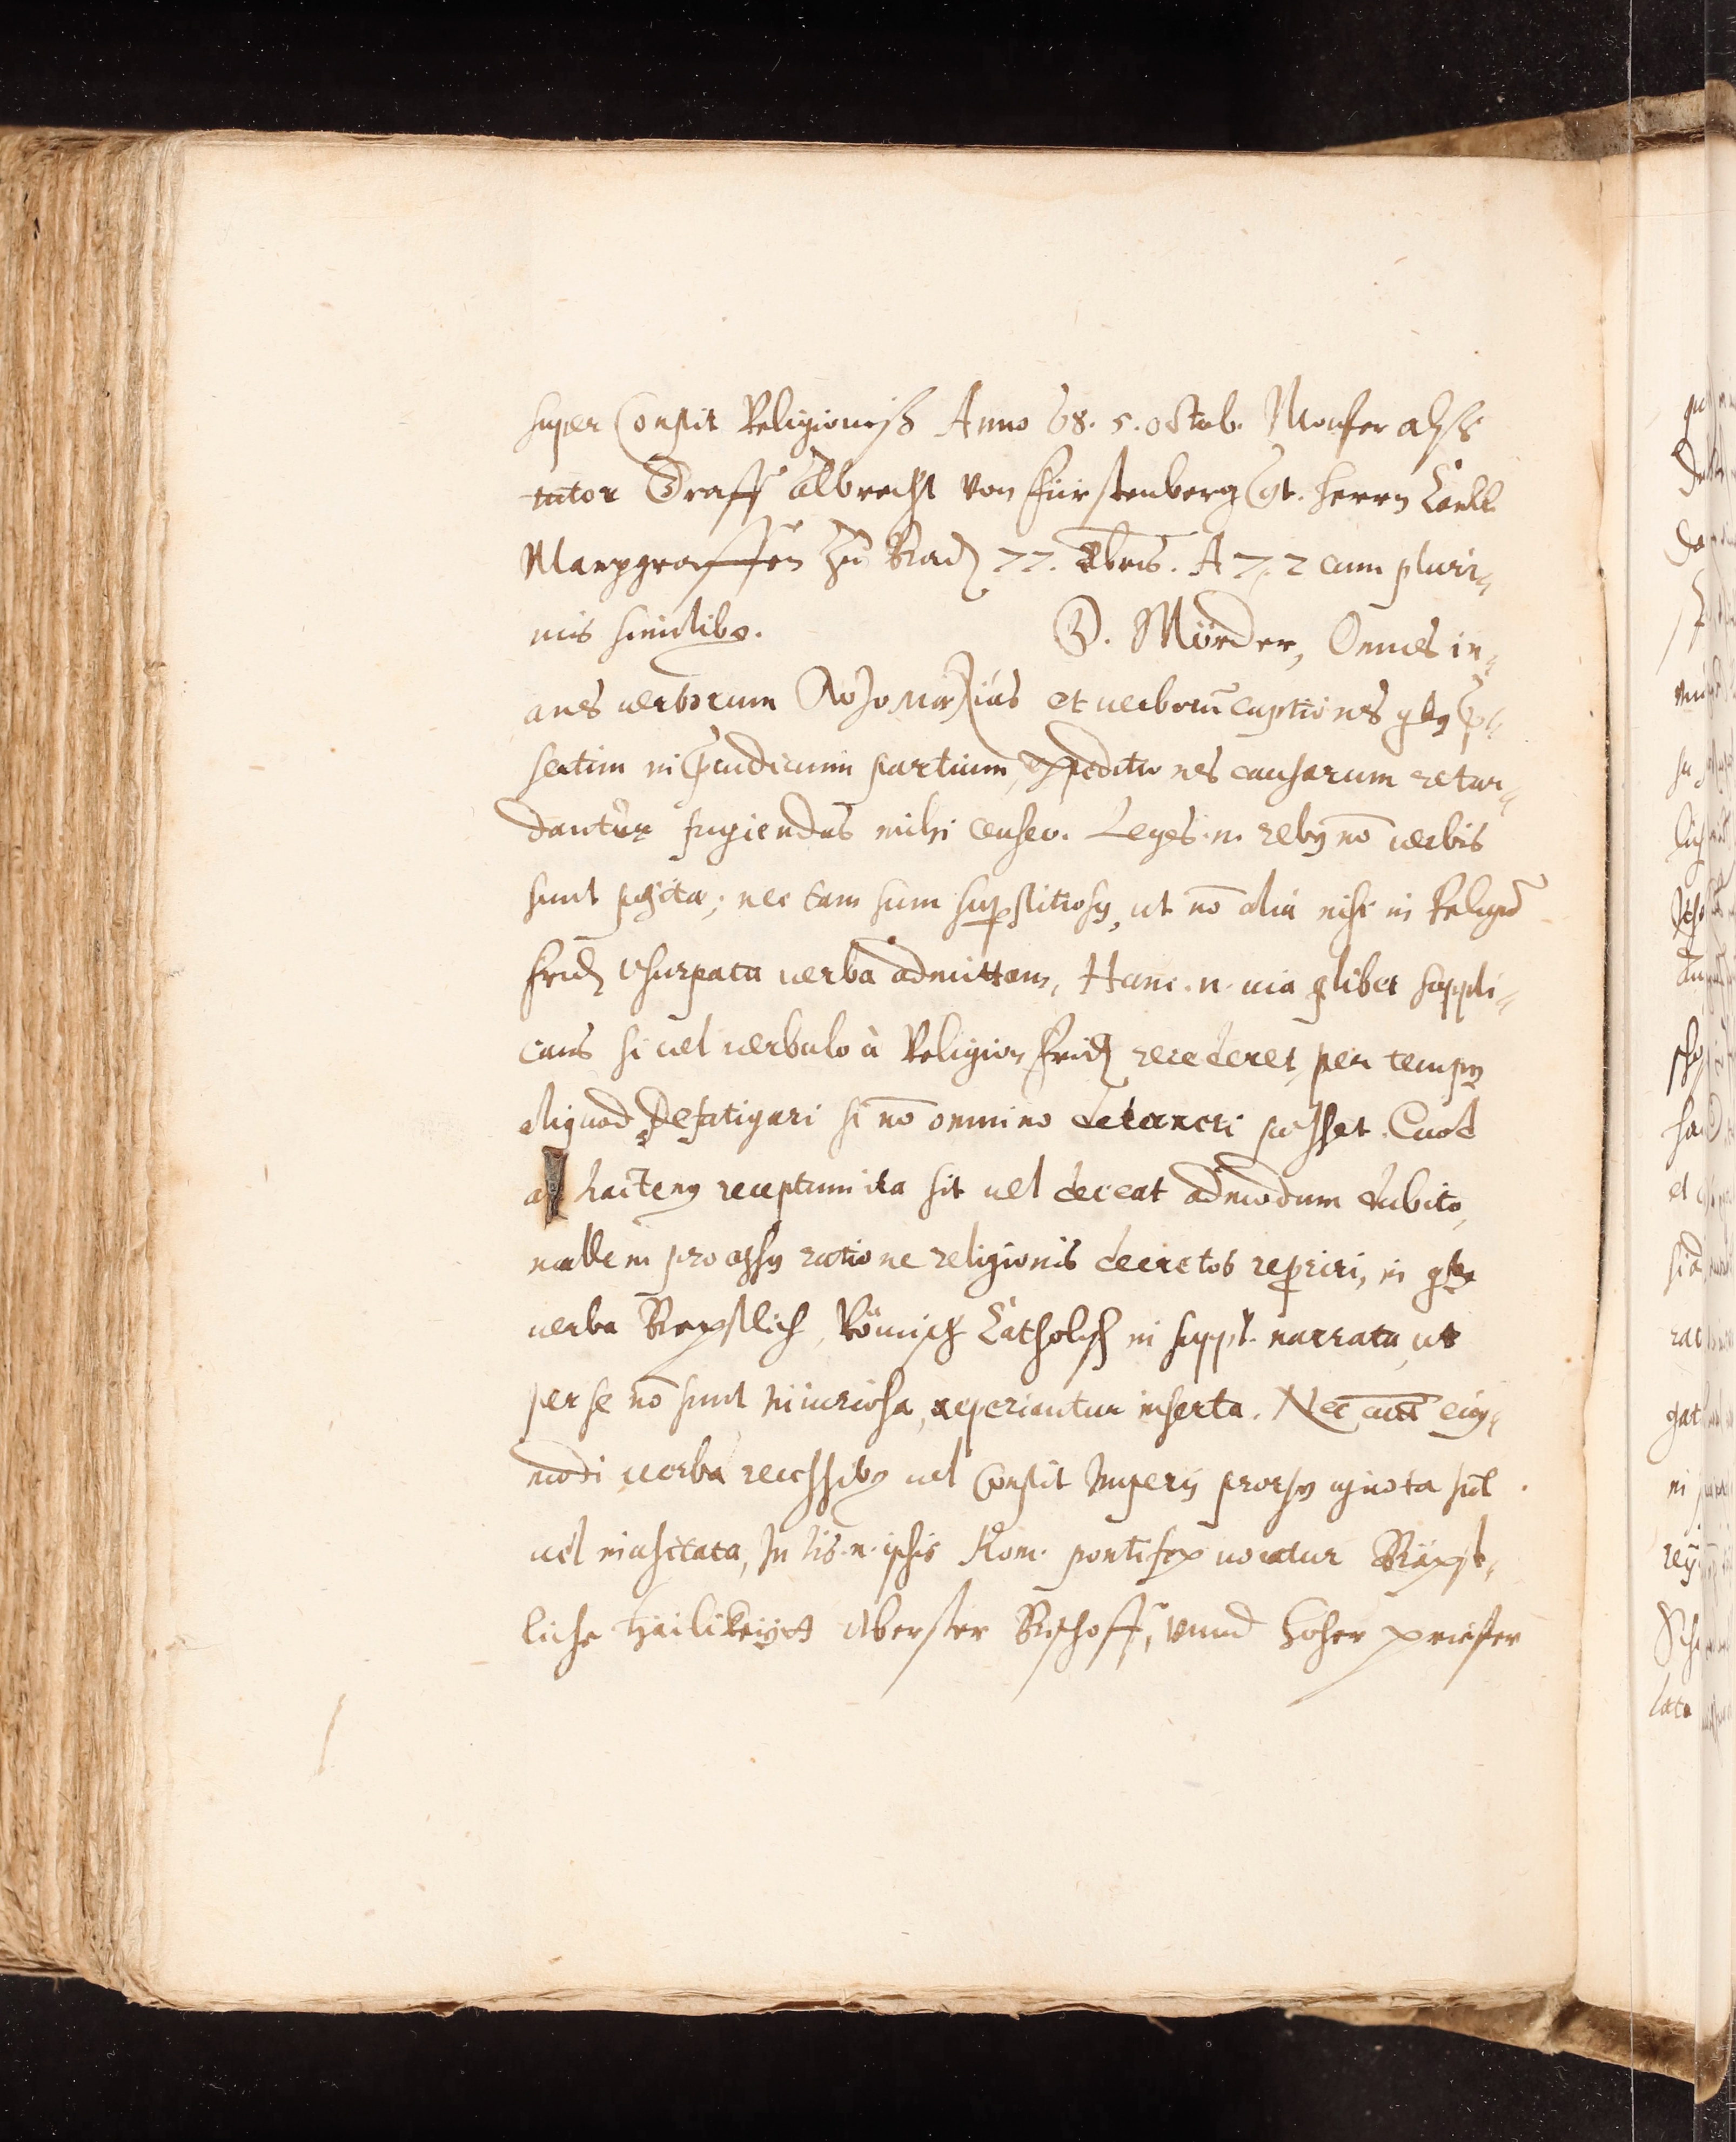 super Constit Religioniß Anno 68. 5. octob. Monser alß
tutor Graff Albrecht von Fürstenberg Ct. herrn Carll
Marggraffen zu Bad 77. xbris. A 72 cum pluri„
mis similibꝫ. D. Mörder, Omnes in„
anes verborum et verborū captiones qbꝫ p„
sertim in pjudicium partium, expeditiones causarum retar„
dantur fugiendas mihi censeo. Leges .n. rebꝫ nō verbis
sunt posita; nec tam sum supstitiosꝫ, ut nō alia nisi in Religiō
frid usurpata verba admittam, Hanc .n. via qlibet suppli„
cans si vel verbulo à Religion frid recederet, per tempꝫ
aliquod defatigari si nō omnino deterreri posset. Quod
an hactenꝫ receptum ita sit vel deceat admodum dubito,
mallem processꝫ ratione religionis decretos repriri, in qbꝫ
verba Bepstlich, Römisch Catholisch in suppl. narrata, ut
per se nō sunt iniuriosa, reperiantur inserta. Nec eiꝫ„
modi verba recessibꝫ vel Constit Imperij prorsꝫ ignota sūt
vel inusitata, In his .n. ipsis Rom. pontifex vocatur Bäpst„
liche Hailikeijtt Oberster Bischoff, vnnd hoher priester